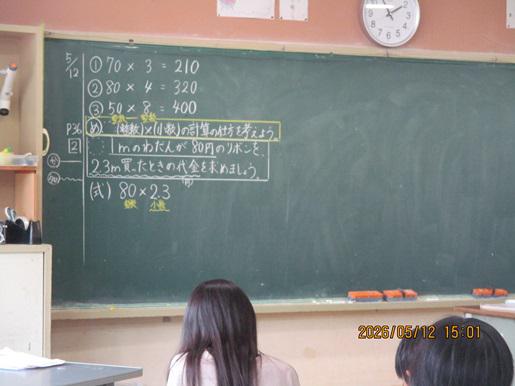 5/12
① 70 × 3 = 210
② 80 × 4 = 320
③ 50 × 8 = 400
整数 整数
め (整数)×(小数)の計算の仕方を考えよう。
P36
2
1mのねだんが80円のリボンを、
2.3m買ったときの代金を求めましょう。
(式) 80×2.3
整数 小数
2026/05/12 15:01